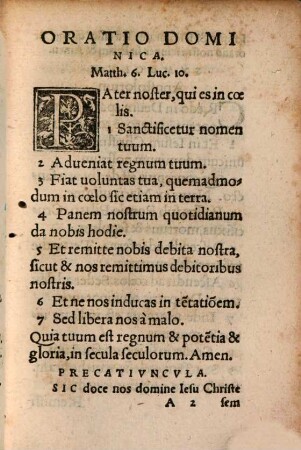 ORATIO DOMI
NICA.
Matth. 6. Luc. 10.
PAter noster, qui es in cœ
lis.
1 Sanctificetur nomen
tuum.
2 Adueniat regnum tuum.
3 Fiat uoluntas tua, quemadmo-
dum in cœlo sic etiam in terra.
4 Panem nostrum quotidianum
da nobis hodie.
5 Et remitte nobis debita nostra,
sicut & nos remittimus debitoribus
nostris.
6 Et ne nos inducas in tẽtatiõem.
7 Sed libera nos à malo.
Quia tuum est regnum & potẽtia &
gloria, in secula seculorum. Amen.
PRECATIVNCVLA.
SIC doce nos domine Iesu Christe
A 2 sem